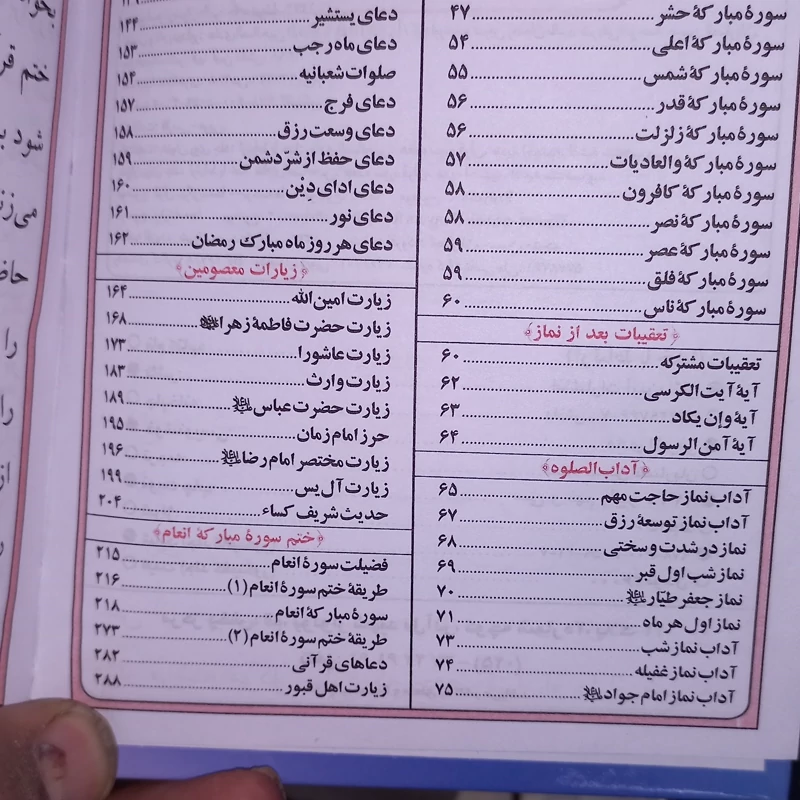 سورهٔ مبارکهٔ حشر ۴۷
سورهٔ مبارکهٔ اعلی ۵۴
سورهٔ مبارکهٔ شمس ۵۵
سورهٔ مبارکهٔ قدر ۵۶
سورهٔ مبارکهٔ زلزلت ۵۶
سورهٔ مبارکهٔ والعادیات ۵۷
سورهٔ مبارکهٔ کافرون ۵۸
سورهٔ مبارکهٔ نصر ۵۸
سورهٔ مبارکهٔ عصر ۵۹
سورهٔ مبارکهٔ فلق ۵۹
سورهٔ مبارکهٔ ناس ۶۰
﴿تعقیبات بعد از نماز﴾
تعقیبات مشترکه ۶۰
آیهٔ آیت الکرسی ۶۲
آیهٔ وإن یکاد ۶۳
آیهٔ آمن الرسول ۶۴
﴿آداب الصلوه﴾
آداب نماز حاجت مهم ۶۵
آداب نماز توسعهٔ رزق ۶۷
نماز در شدت و سختی ۶۸
نماز شب اول قبر ۶۹
نماز جعفر طیّار ۷۰
نماز اول هر ماه ۷۱
آداب نماز شب ۷۳
آداب نماز غفیله ۷۴
آداب نماز امام جواد ۷۵
دعای یستشیر ۱۴۴
دعای ماه رجب ۱۵۳
صلوات شعبانیه ۱۵۴
دعای فرج ۱۵۷
دعای وسعت رزق ۱۵۸
دعای حفظ از شرّ دشمن ۱۵۹
دعای ادای دِیْن ۱۶۰
دعای نور ۱۶۱
دعای هر روز ماه مبارک رمضان ۱۶۲
﴿زیارات معصومین﴾
زیارت امین الله ۱۶۴
زیارت حضرت فاطمهٔ زهرا ۱۶۸
زیارت عاشورا ۱۷۳
زیارت وارث ۱۸۳
زیارت حضرت عباس ۱۸۹
حرز امام زمان ۱۹۵
زیارت مختصر امام رضا ۱۹۶
زیارت آل یس ۱۹۹
حدیث شریف کساء ۲۰۴
﴿ختم سورهٔ مبارکهٔ انعام﴾
فضیلت سورهٔ انعام ۲۱۵
طریقهٔ ختم سورهٔ انعام (۱) ۲۱۶
سورهٔ مبارکهٔ انعام ۲۱۸
طریقهٔ ختم سورهٔ انعام (۲) ۲۷۳
دعاهای قرآنی ۲۸۲
زیارت اهل قبور ۲۸۸
ختم
شود
حاض
را
را
از